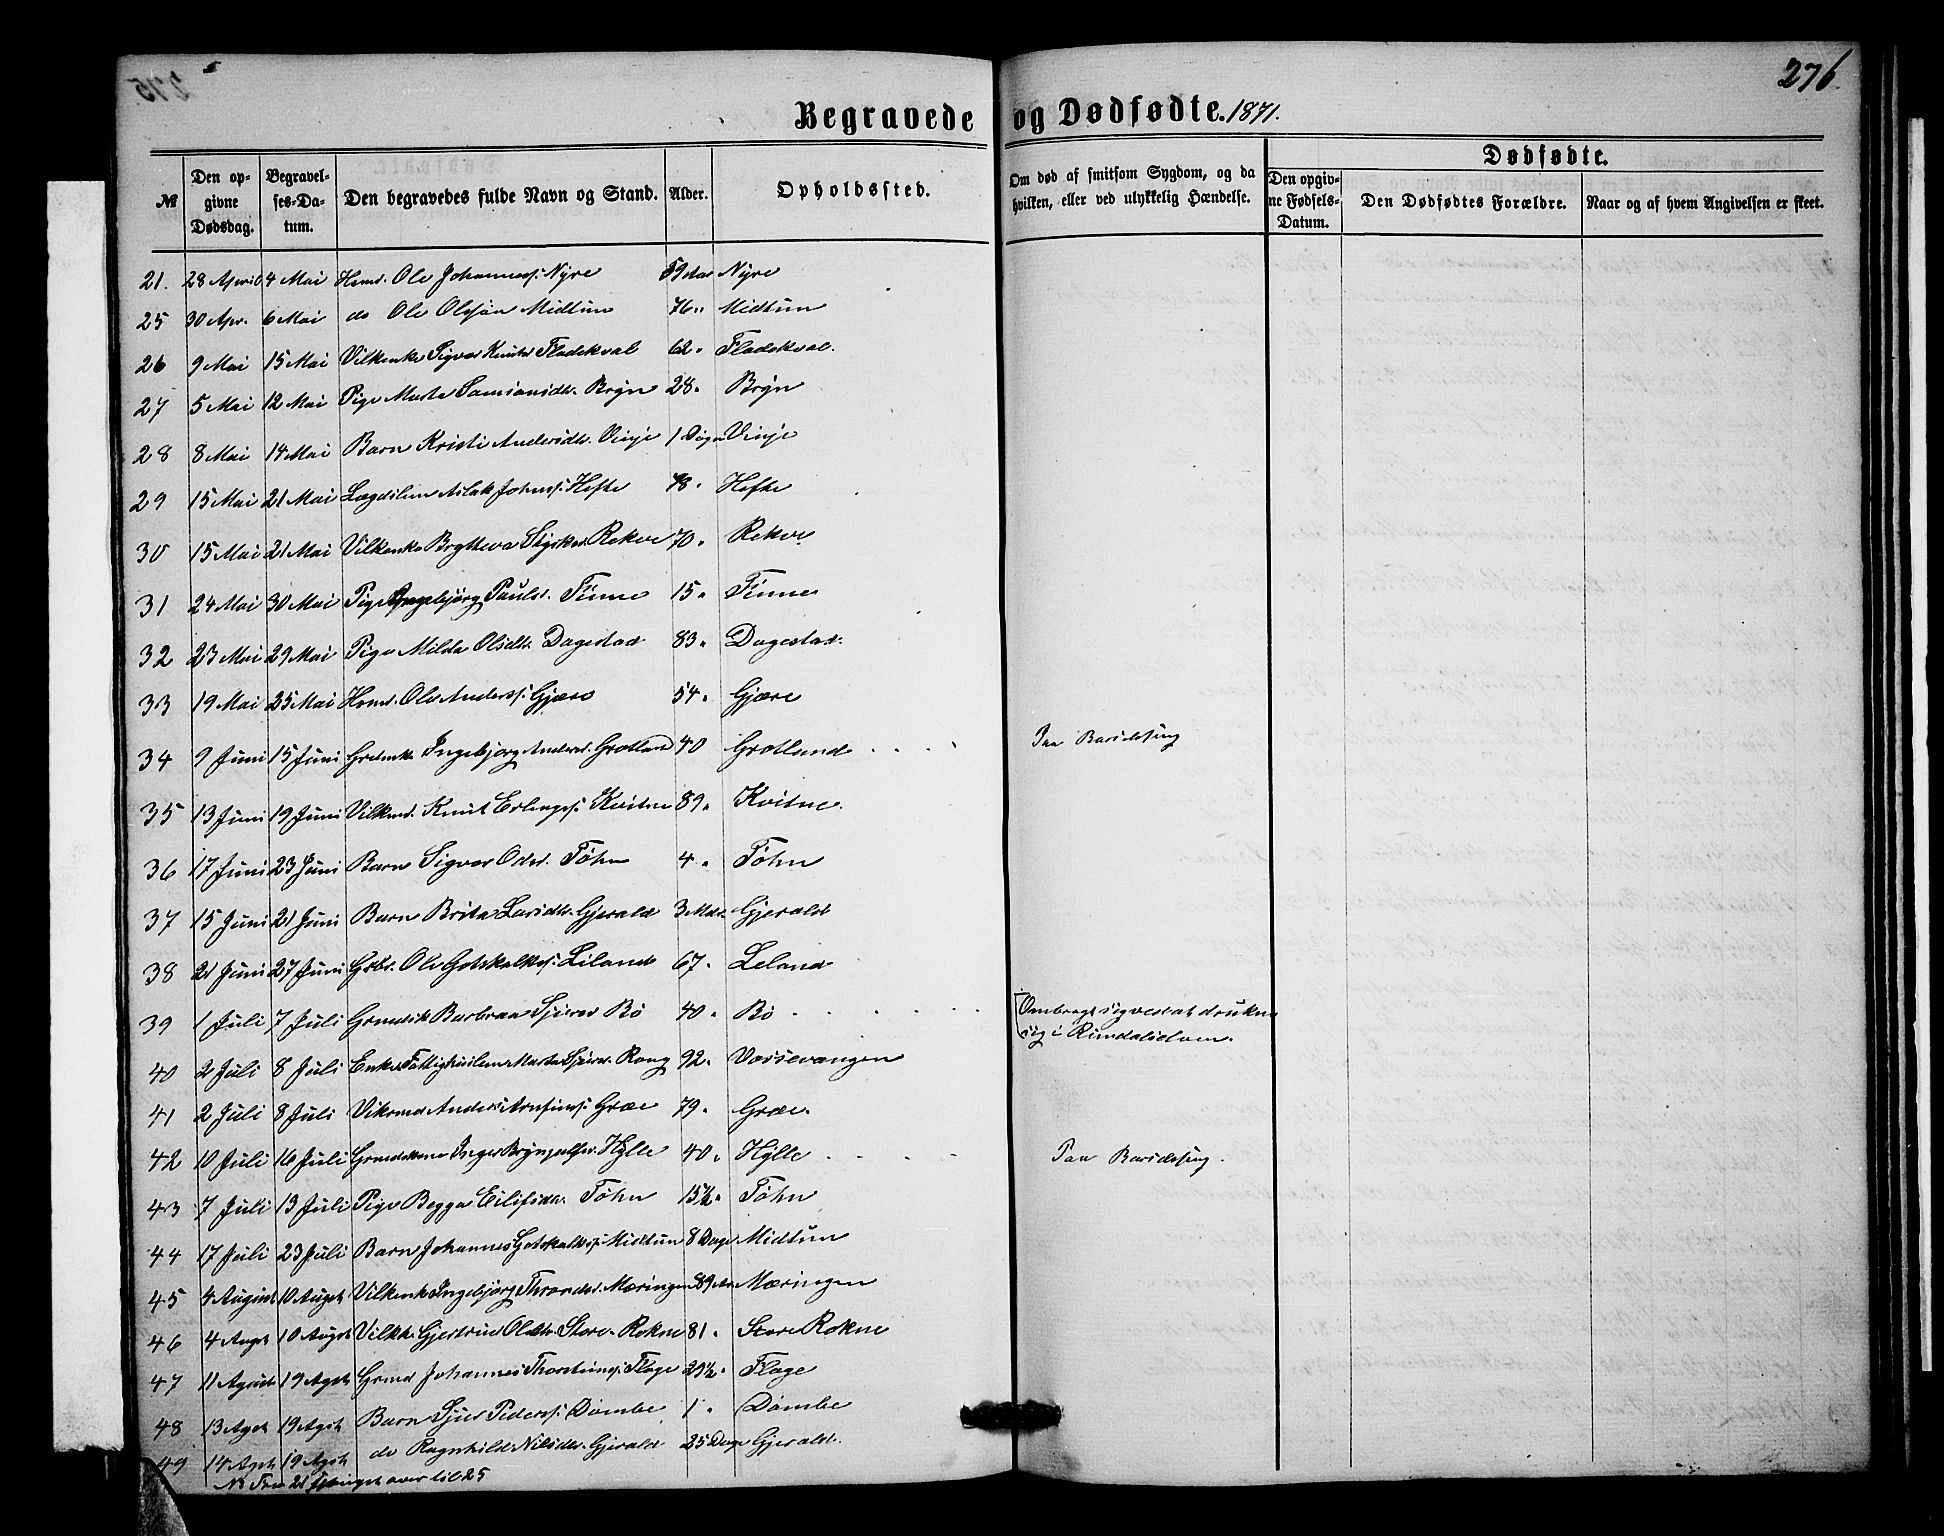 276.
Begravede og Dødfødte. 1871.
№
Den opgivne Dødsdag.
Begravelses-Datum.
Den begravedes fulde Navn og Stand.
Alder.
Opholdssted.
Om død af smitsom Sygdom, og da hvilken, eller ved ulykkelig Hændelse.
Dødfødte.
Den opgivne Fødsels-Datum.
Den Dødfødtes Forældre.
Naar og af hvem Angivelsen er skeet.
21. 28 April 4 Mai Hsmd. Ole Johanness: Nyre 59 Aar Nyre
25 30 Apr. 6 Mai do Ole Olsøn Midtun 76 " Midtun
26 9 Mai 15 Mai Vilkenke Sigvor Knutsd Fladekval 62 " Fladekval.
27 5 Mai 12 Mai Pige Marta Samsonsdtr. Bryn 28 " Bryn
28 8 Mai 14 Mai Barn Kristi Andersdtr. Vinje 1 Døgn Vinje
29 15 Mai 21 Mai Lægdslem Aslak Johnss: Hefte 48 " Hefte
30 15 Mai 21 Mai Vilkenke Brytteva Styrksd. Rekve 70 " Rekve
31 24 Mai 30 Mai Pige Ingebjørg Paulsd. Finne 15 " Finne
32 23 Mai 29 Mai Pige Milda Olsdtr. Dagestad 83 " Dagestad.
33 19 Mai 25 Mai Hsmd. Ole Anderss: Gjære 54 " Gjære
34 9 Juni 15 Juni Grdmk. Ingebjørg Andersd. Grotland 40 Grotland . . . . Paa Barselseng
35 13 Juni 19 Juni Vilkmd. Knut Erlingss: Kvitne 89 " Kvitne.
36 17 Juni 23 Juni Barn Sigvor Odsd. Tøhn 4 " Tøhn
37 15 Juni 21 Juni Barn Brita Larsdtr. Gjerald 3 Mdr. Gjerald
38 21 Juni 27 Juni Grbr. Ole Gotskalks: Liland 67 " Leland
39 1 Juli 7 Juli Grmdsk Barbraa Sjursd Bø 40 " Bø . . . . . Ombragt sig ved at drukne
sig i Rundalselven.
40 2 Juli 8 Juli Enke Fattighuslem Marta Sjursd. Rong 92 " Vossevangen
41 2 Juli 8 Juli Vilkrmd Anders Arnfinns: Græe 79 " Græe.
42 10 Juli 16 Juli Grmdskone Inger Brynjulfsd. Hylle 40 " Hylle . . . . Paa Barselseng.
43 7 Juli 13 Juli Pige Begga Eilifsdtr. Tøhn 15½ " Tøhn
44 17 Juli 23 Juli Barn Johannes Gotskalkss: Midtun 8 Dage Midtun
45 4 August 10 Augst Vilkenk Ingebjørg Throndsd. Mæringen 89 Aar Mæringen
46 4 Augst 10 Augst Vilkk. Gjertrud Olsdtr. Store-Rokne 81 " Store Rokne
47 11 August 19 Agst Grmd Johannes Thorsteins: Flage 29½ " Flage
48 13 Agst 19 Agst Barn Sjur Peders: Dømbe 1 " Dømbe
49 14 Agst 19 Agst do Ragnhild Nilsdtr. Gjerald 25 Dage Gjerald.
No Fra 21 sprunget over til 25